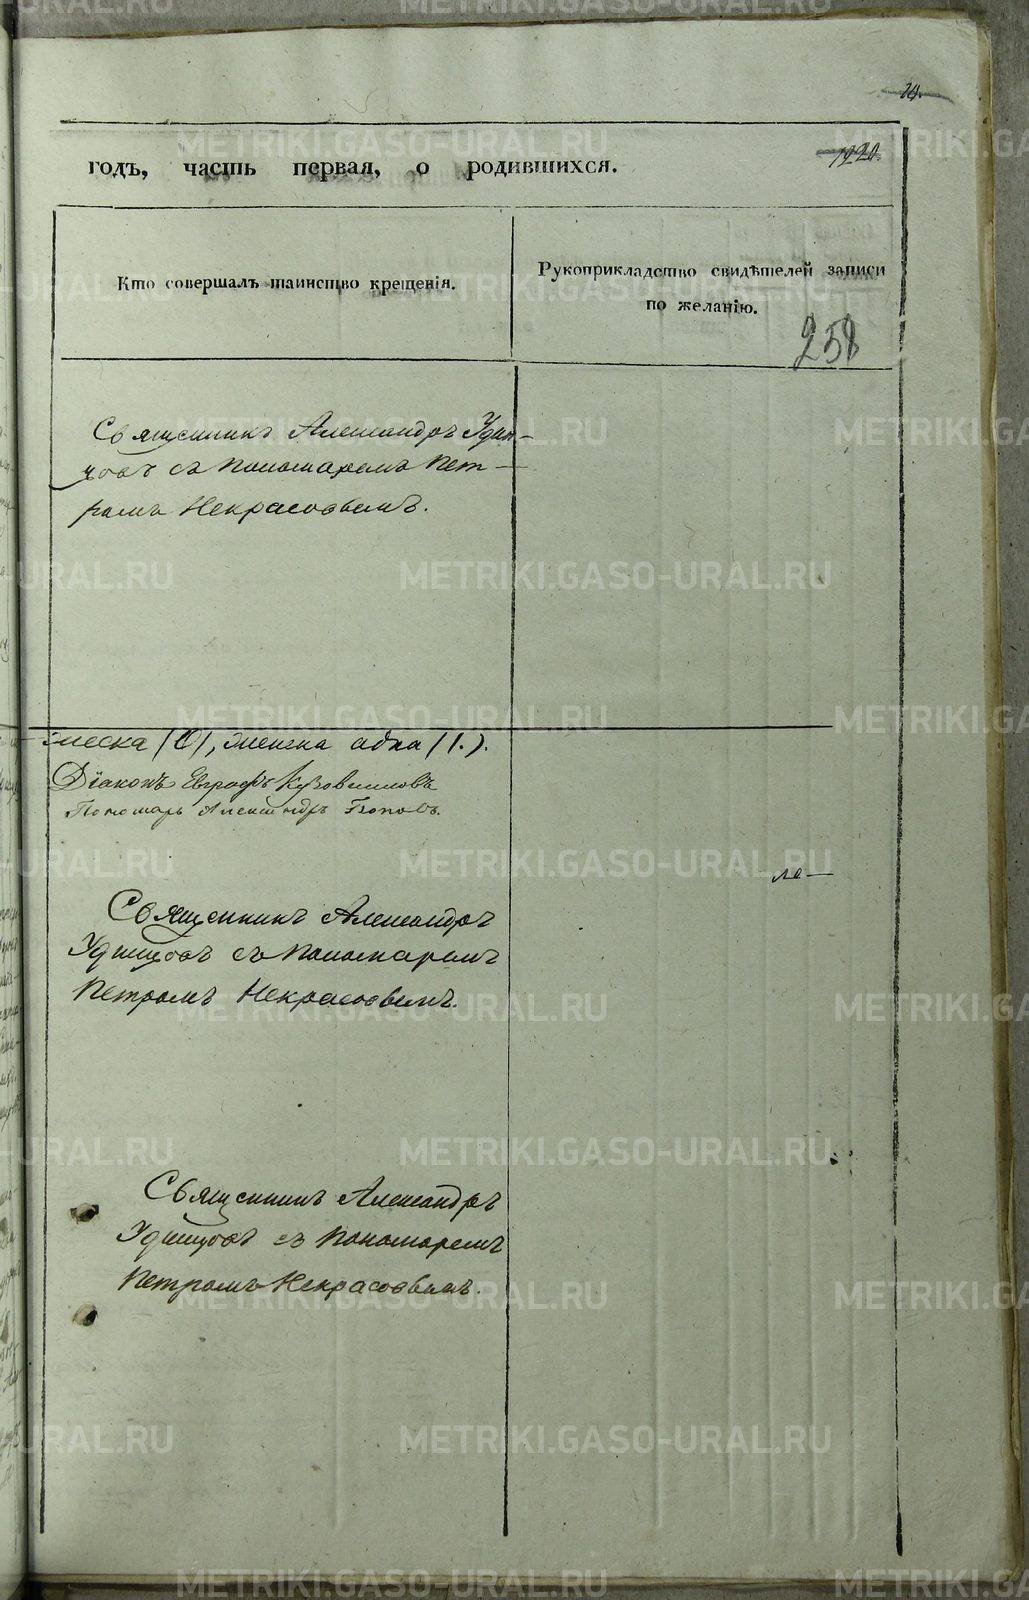 10.
годъ, часть первая, о родившихся.
Кто совершалъ таинство крещенія.
Рукоприкладство свидѣтелей записи
по желанію.
258
Священникъ Александръ Удин-
цовъ съ Пономаремъ Пет-
ромъ Некрасовымъ.
(0), женска одна (1.).
Дiаконъ Евграфъ Кузовниковъ
Пономарь Александръ Поповъ.
Священникъ Александръ
Удинцовъ съ Пономаремъ
Петромъ Некрасовымъ.
Священникъ Александръ
Удинцовъ съ Пономаремъ
Петромъ Некрасовымъ.
METRIKI.GASO-URAL.RU